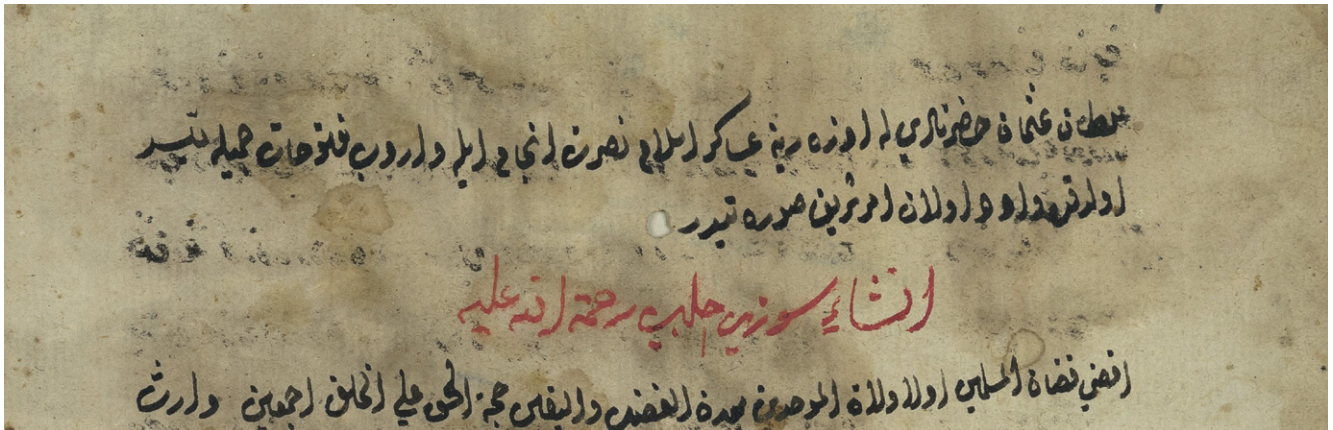 سلطان عثمان حضرتلري له اوزرينه عساكر اسلام نصرت انجام ايله واروب فتوحات جميله ميسر
اولدقده وارد اولان امر شريف صورتيدر
انشاء سوزي چلبي رحمة الله عليه
اقضي قضاة المسلمين اولي ولاة الموحدين معدن الفضل واليقين حجة الحق علي الخلق اجمعين وارث